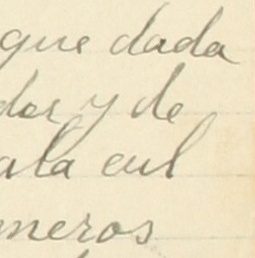 que dada
dor y de
ala cul
meros